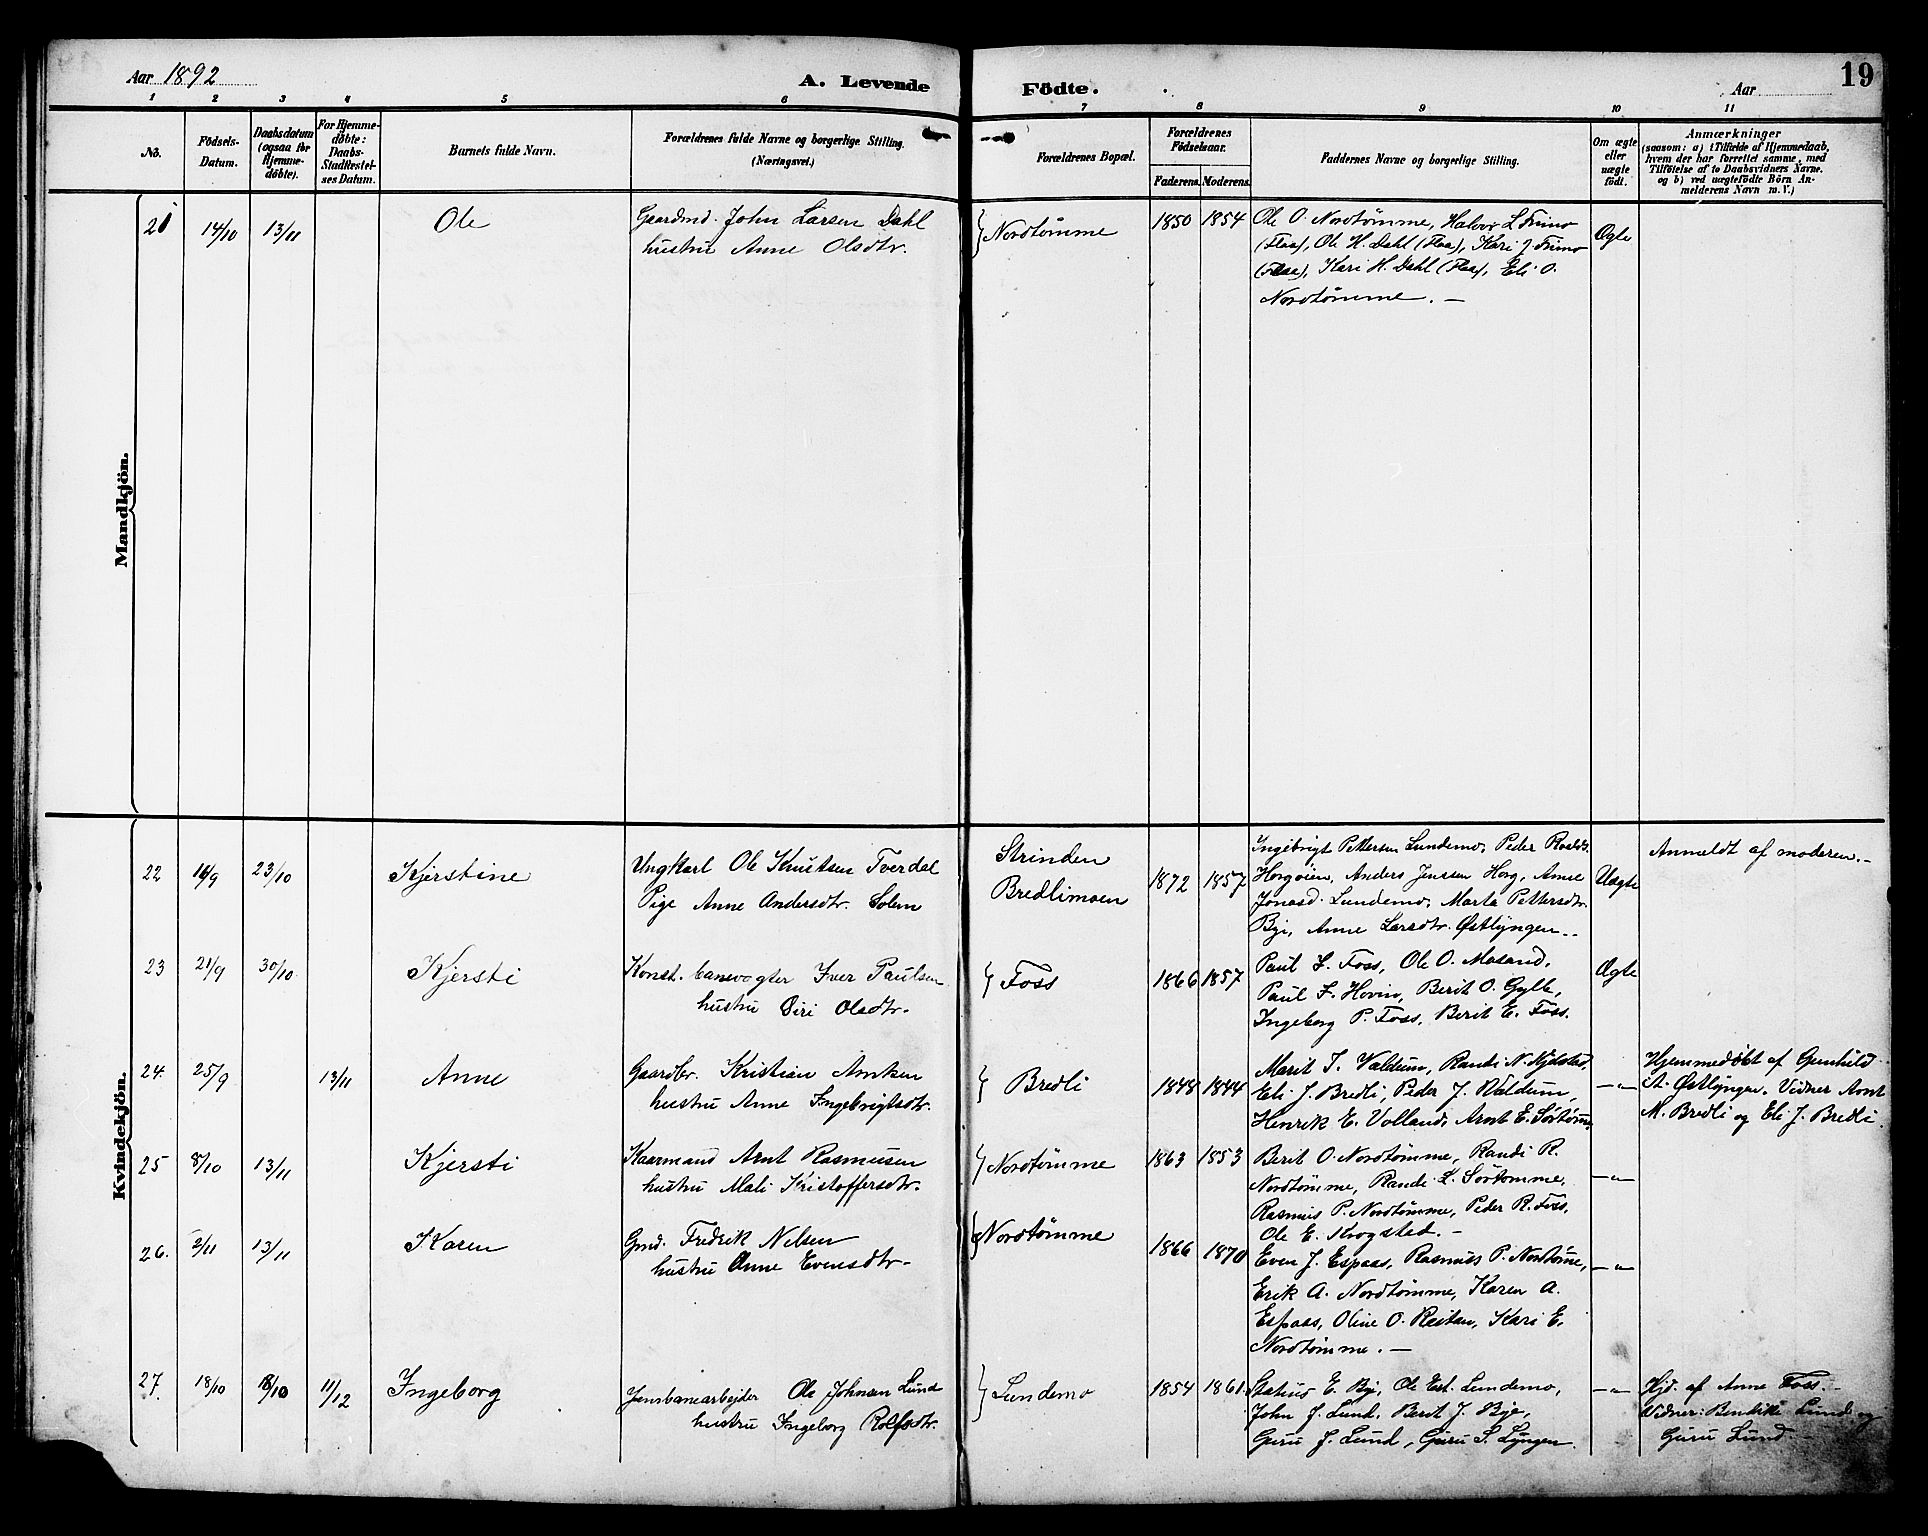 Aar 1892
A. Levende Födte.
Aar
19
1 2 3 4 5 6 7 8 9 10 11
No. Födsels-Datum. Daabsdatum (ogsaa for Hjemme-döbte). For Hjemme-döbte: Daabs-Stadfæstel-ses Datum. Barnets fulde Navn. Forældrenes fulde Navne og borgerlige Stilling. (Næringsvei.) Forældrenes Bopæl. Forældrenes Födselsaar. Faderens. Moderens. Faddernes Navne og borgerlige Stilling. Om ægte eller uægte födt. Anmærkninger (saasom: a) i Tilfælde af Hjemmedaab, hvem der har forrettet samme, med Tilføielse af to Daabsvidners Navne. og b) ved uægtefödte Börn An-melderens Navn m. V.)
Mandkjön.
21 14/10 13/11 Ole Gaardmd. John Larsen Dahl
hustru Anne Olsdtr.
Nordtømme 1850 1854 Ole O. Nordtømme, Halvor L. Frimo
(Flaa), Ole H. Dahl (Flaa), Kari J. Frimo
(Flaa), Kari H. Dahl (Flaa), Eli O.
Nordtømme. —
Ægte
Kvindekjön.
22 16/9 23/10 Kjerstine Ungkarl Ole Knutsen Tverdal
Pige Anne Andersdtr. Solem
Strinden
Bredlimoen
1872 1857 Ingebrigt Pettersen Lundemo, Peder
Horgøien, Anders Jenssen Horg, Anne
Jonasd. Lundemo, Marta Pettersdtr.
By, Anne Larsdtr. Østlyngen..
Uægte Anmeldt af moderen.-
23 21/9 30/10 Kjersti Konst. banevogter Iver Paulsen
hustru Siri Olsdtr.
Foss 1866 1857 Paul L. Foss, Ole O. Mosand,
Paul F. Hovin, Berit O. Gylle,
Ingeborg P. Foss, Berit E. Foss.
Ægte
24. 25/9 13/11 Anne Gaardbr. Kristian Arntsen
hustru Anne Ingebrigtsdtr.
Bredli 1848 1844 Marit I. Valdum, Randi N.
Eli J. Bredli, Peder J. Valdum,
Henrik E. Volland, Arnt E. Sørtømme
—"— Hjemmedøbt af Gunhild
A. Østlyngen. Vidner Arnt
M. Bredli og Eli J. Bredli.
25 8/10 13/11 Kjersti Kaarmand Arnt Rasmusen
hustru Mali Kristoffersdtr.
Nordtømme 1863 1853 Berit O. Nordtømme, Randi R.
Nordtømme, Randi L. Sørtømme,
Rasmus P. Nordtømme, Peder R. Foss,
Ole E. Krogsted. —
—"—
26. 2/11 13/11 Karen Gmd. Fredrik Nilsen
hustru Anne Evensdtr.
Nordtømme 1866 1870 Even J. Espaas, Rasmus P. Nordtømme,
Erik A. Nordtømme, Karen A.
Espaas, Oline O. Reitan, Kari E.
Nordtømme. —
—"—
27. 18/10 18/10 11/12 Ingeborg Jernbanearbejder Ole Johnsen Lund
hustru Ingeborg Rolfsdtr.
Lundemo 1854 1861 Statius E. By, Ole Est. Lundemo,
John J. Lund, Berit J. Bye,
Guru J. Lund, Guru S. Lyngen.
—"— Hjd. af Anne Foss.
Vidner: Lund og
Guru Lund